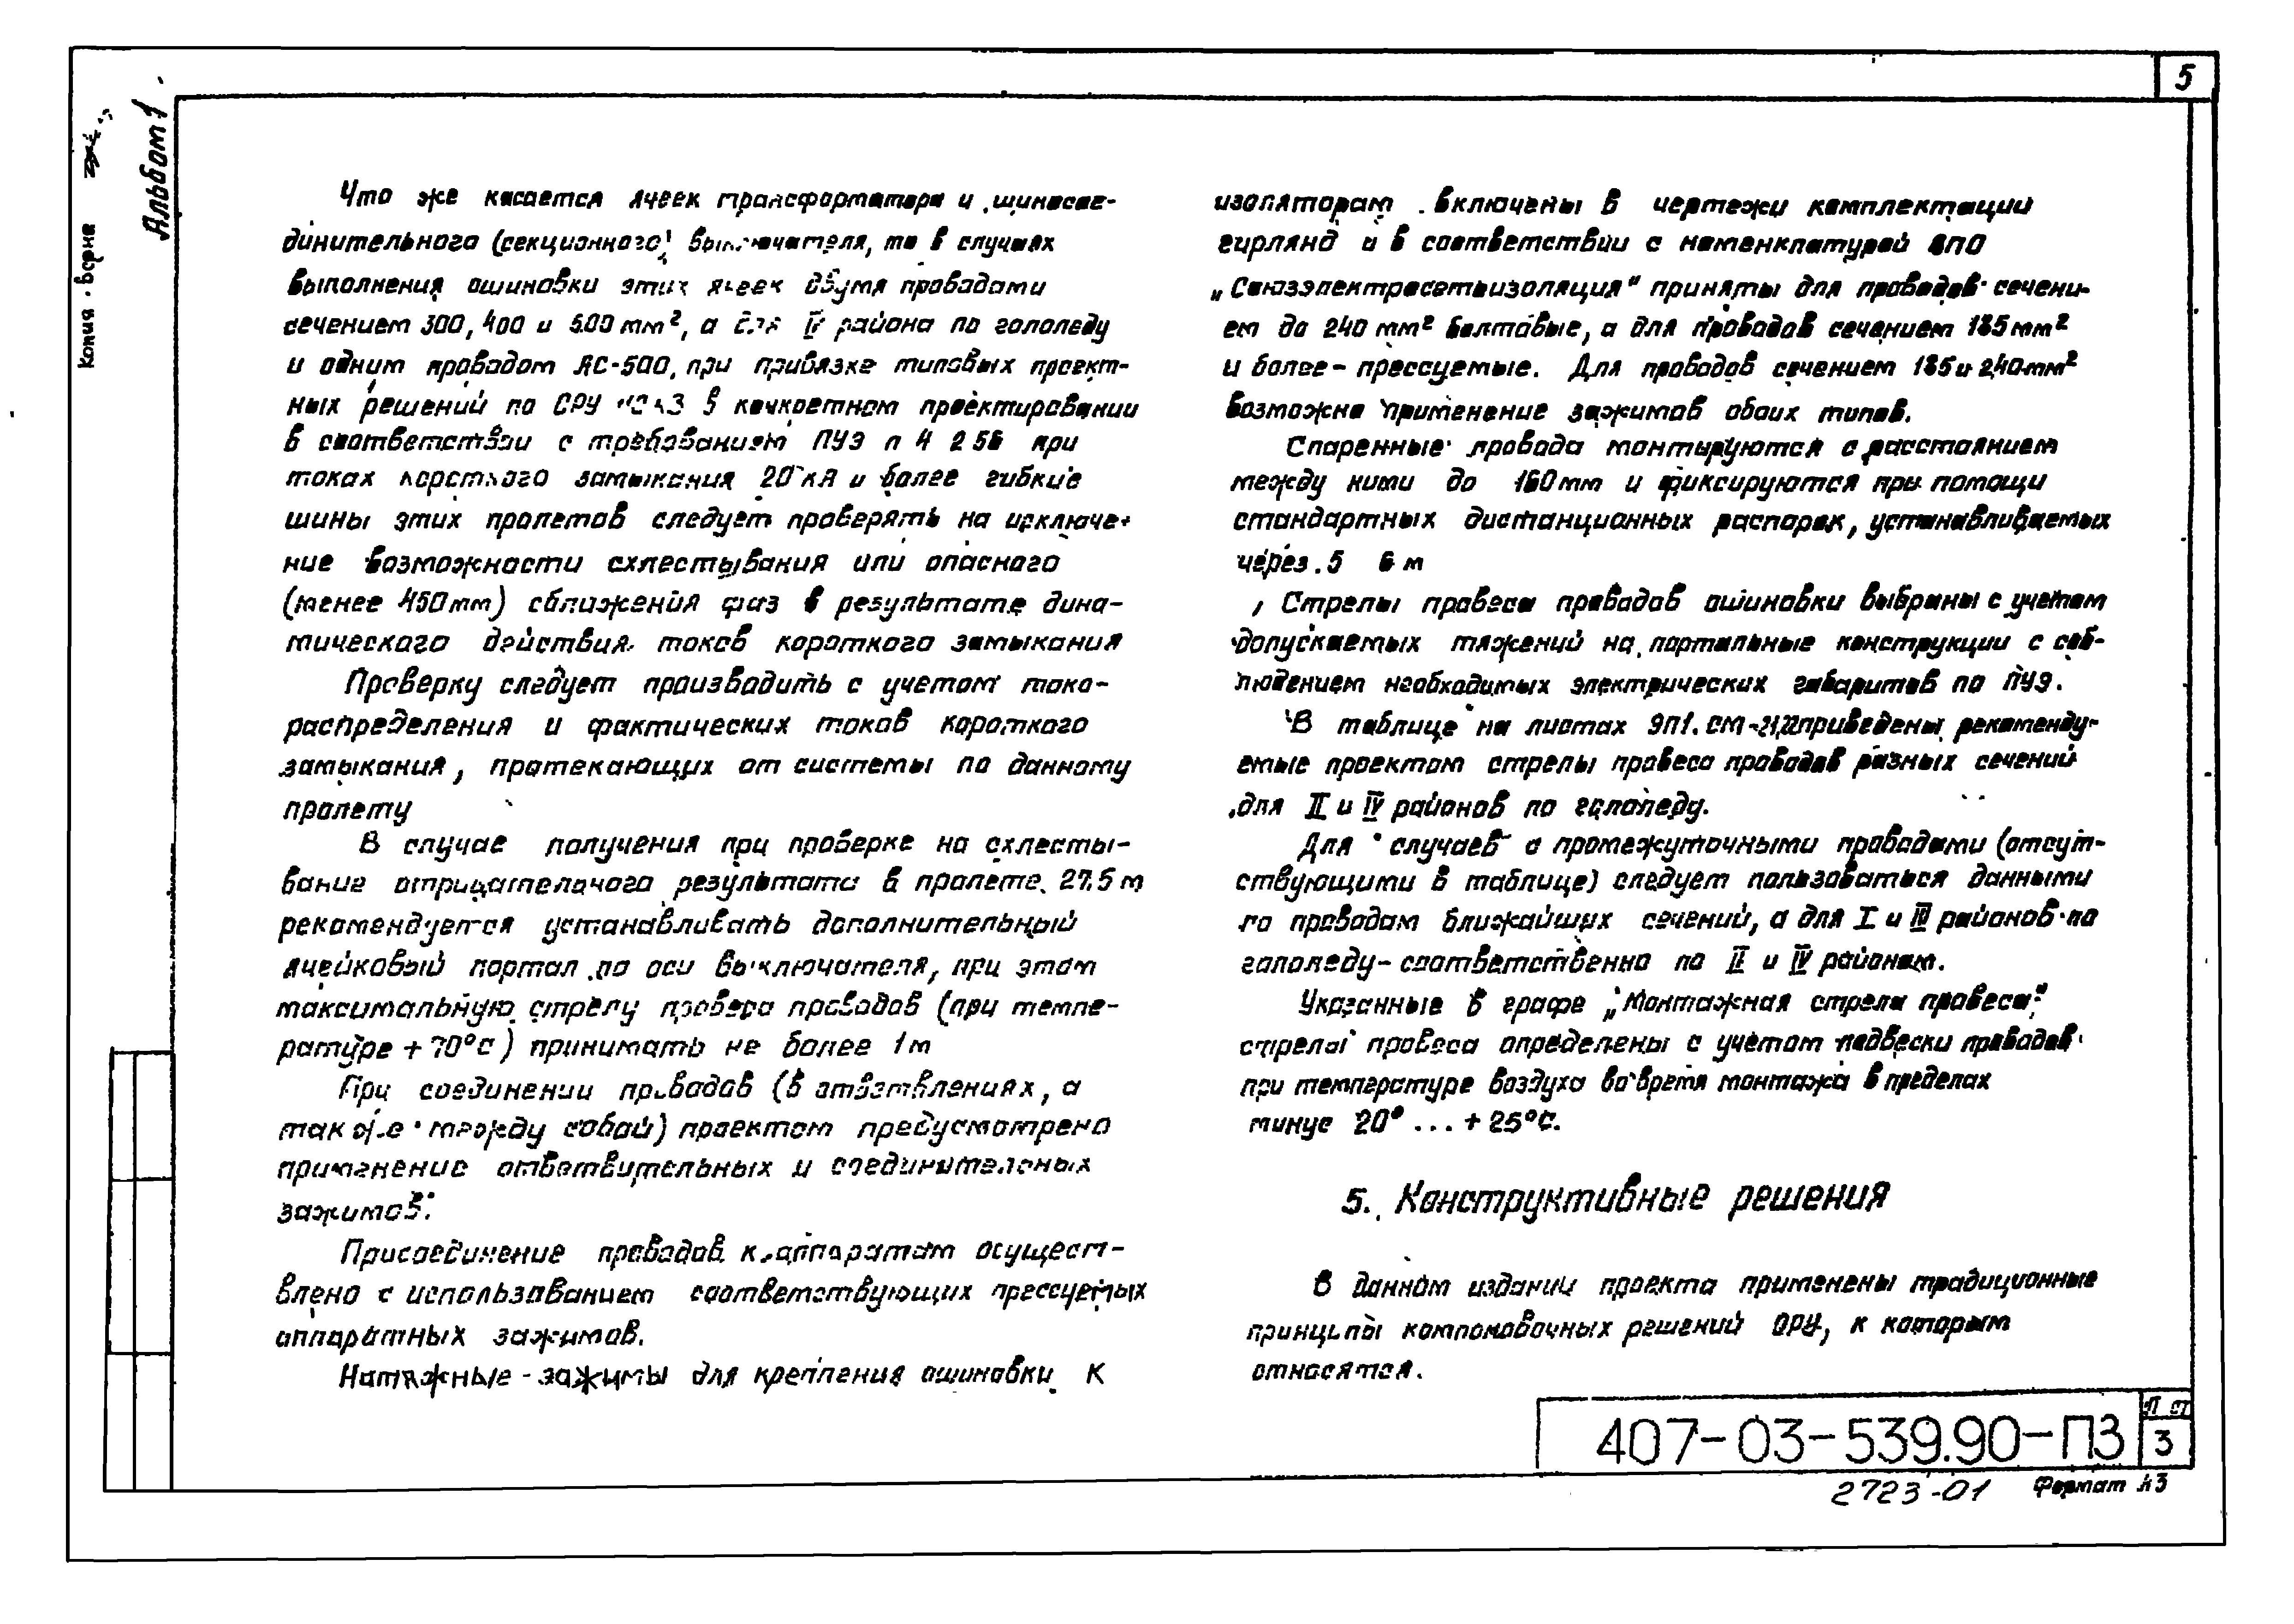 5
Копия верна
Альбом 1
Что же касается ячеек трансформатора и шиносое-
динительного (секционного) выключателя, то в случаях
выполнения ошиновки этих ячеек двумя проводами
сечением 300, 400 и 500 мм², а для IV района по гололеду
и одним проводом АС-500, при привязке типовых проект-
ных решений по ОРУ в конкретном проектировании
в соответствии с требованием ПУЭ п 4 2 56 при
токах короткого замыкания 20 кА и более гибкие
шины этих пролетов следует проверять на исключе-
ние возможности схлестывания или опасного
(менее 450 мм) сближения фаз в результате дина-
мического действия токов короткого замыкания
Проверку следует производить с учетом токо-
распределения и фактических токов короткого
замыкания, протекающих от системы по данному
пролету
В случае получения при проверке на схлесты-
вание отрицательного результата в пролете 27.5 м
рекомендуется устанавливать дополнительный
ячейковый портал по оси выключателя, при этом
максимальную стрелу провеса проводов (при темпе-
ратуре + 70°С) принимать не более 1 м
При соединении проводов (в ответвлениях, а
также между собой) проектом предусмотрено
применение ответвительных и соединительных
зажимов.
Присоединение проводов к аппаратам осущест-
влено с использованием соответствующих прессуемых
аппаратных зажимов.
Натяжные зажимы для крепления ошиновки к
изоляторам включены в чертежи комплектации
гирлянд и в соответствии с номенклатурой ВПО
„Союзэлектросетьизоляция" приняты для проводов сечени-
ем до 240 мм² болтовые, а для проводов сечением 185 мм²
и более - прессуемые. Для проводов сечением 185 и 240 мм²
возможно применение зажимов обоих типов.
Спаренные провода монтируются с расстоянием
между ними до 160 мм и фиксируются при помощи
стандартных дистанционных распорок, устанавливаемых
через 5 6 м
Стрелы провеса проводов ошиновки выбраны с учетом
допускаемых тяжений на портальные конструкции с соб-
людением необходимых электрических габаритов по ПУЭ.
В таблице на листах ЭП1. СМ- приведены рекоменду-
емые проектом стрелы провеса проводов разных сечений
для II и IV районов по гололеду.
Для случаев с промежуточными проводами (отсут-
ствующими в таблице) следует пользоваться данными
по проводам ближайших сечений, а для I и III районов по
гололеду - соответственно по II и IV районам.
Указанные в графе „Монтажная стрела провеса"
стрелы провеса определены с учетом подвески проводов
при температуре воздуха во время монтажа в пределах
минус 20° ... + 25°С.
5. Конструктивные решения
В данном издании проекта применены традиционные
принципы компоновочных решений ОРУ, к которым
относятся.
407-03-539.90-ПЗ
Лист
3
2723-01
Формат А3